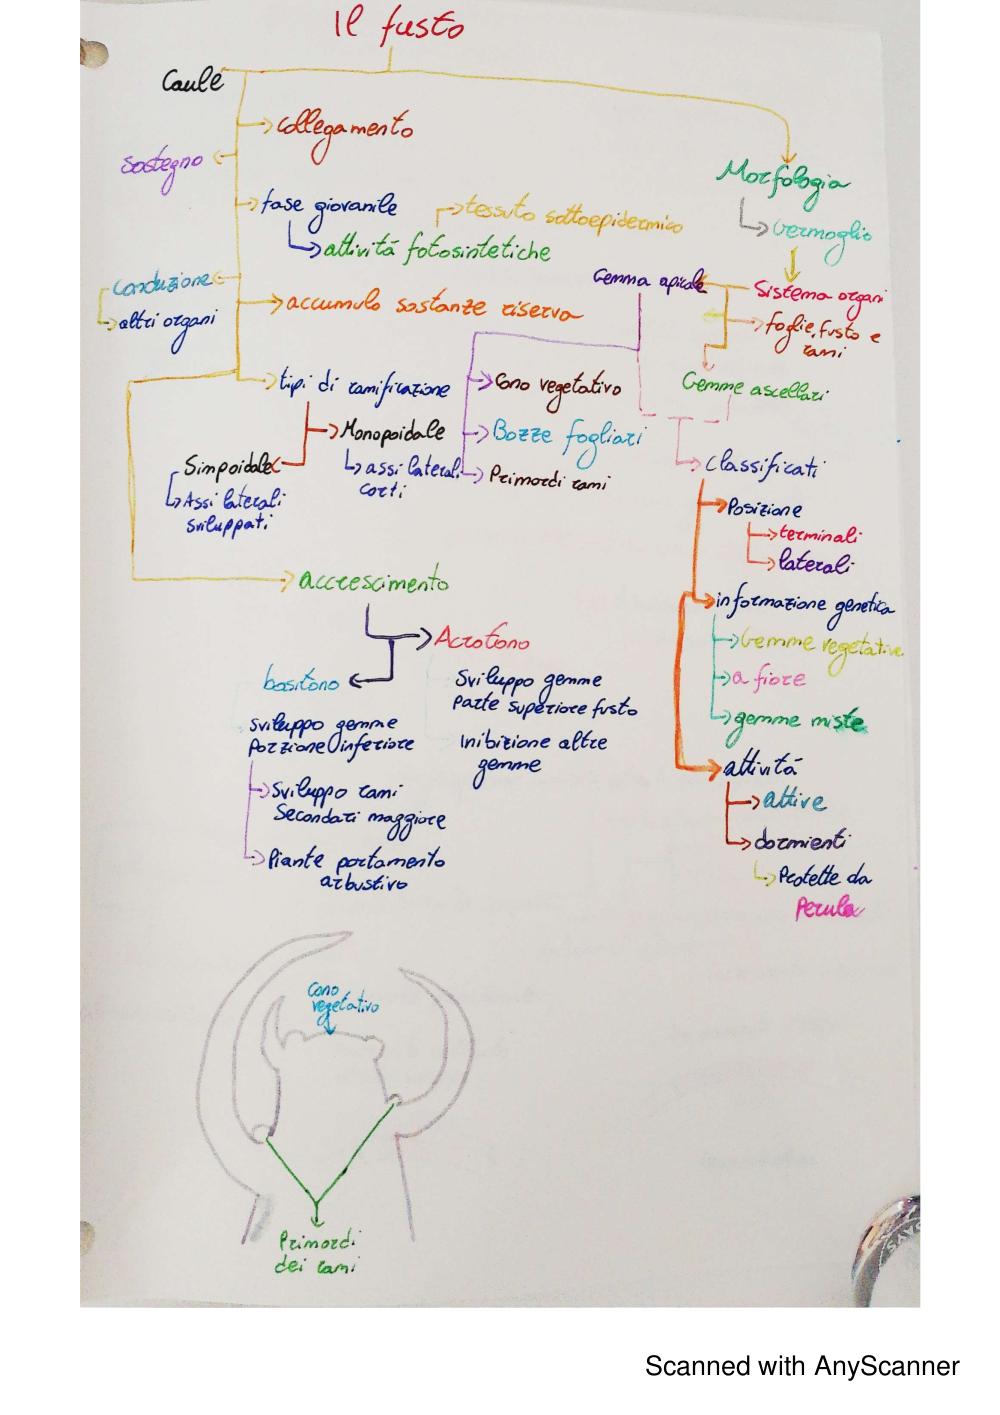 Il fusto
Caule
collegamento
sostegno
Morfologia
fase giovanile
tessuto sottoepidermico
vermoglio
attività fotosintetiche
Conduzione
Gemma apicale
Sistema organi
altri organi
accumulo sostanze riserva
foglie, fusto e
rami
tipi di ramificazione
Cono vegetativo
Gemme ascellari
Monopoidale
Bozze fogliari
Simpoidale
assi laterali
corti
Primordi rami
Classificati
Assi laterali
sviluppati
Posizione
terminali
laterali
accrescimento
informazione genetica
Acrotono
Gemme vegetative
basitono
Sviluppo gemme
parte superiore fusto
a fiore
sviluppo gemme
porzione inferiore
Inibizione altre
gemme
gemme miste
attività
Sviluppo rami
Secondari maggiore
attive
dormienti
Piante portamento
arbustivo
Protette da
Perula
Cono
vegetativo
Primordi
dei rami
Scanned with AnyScanner